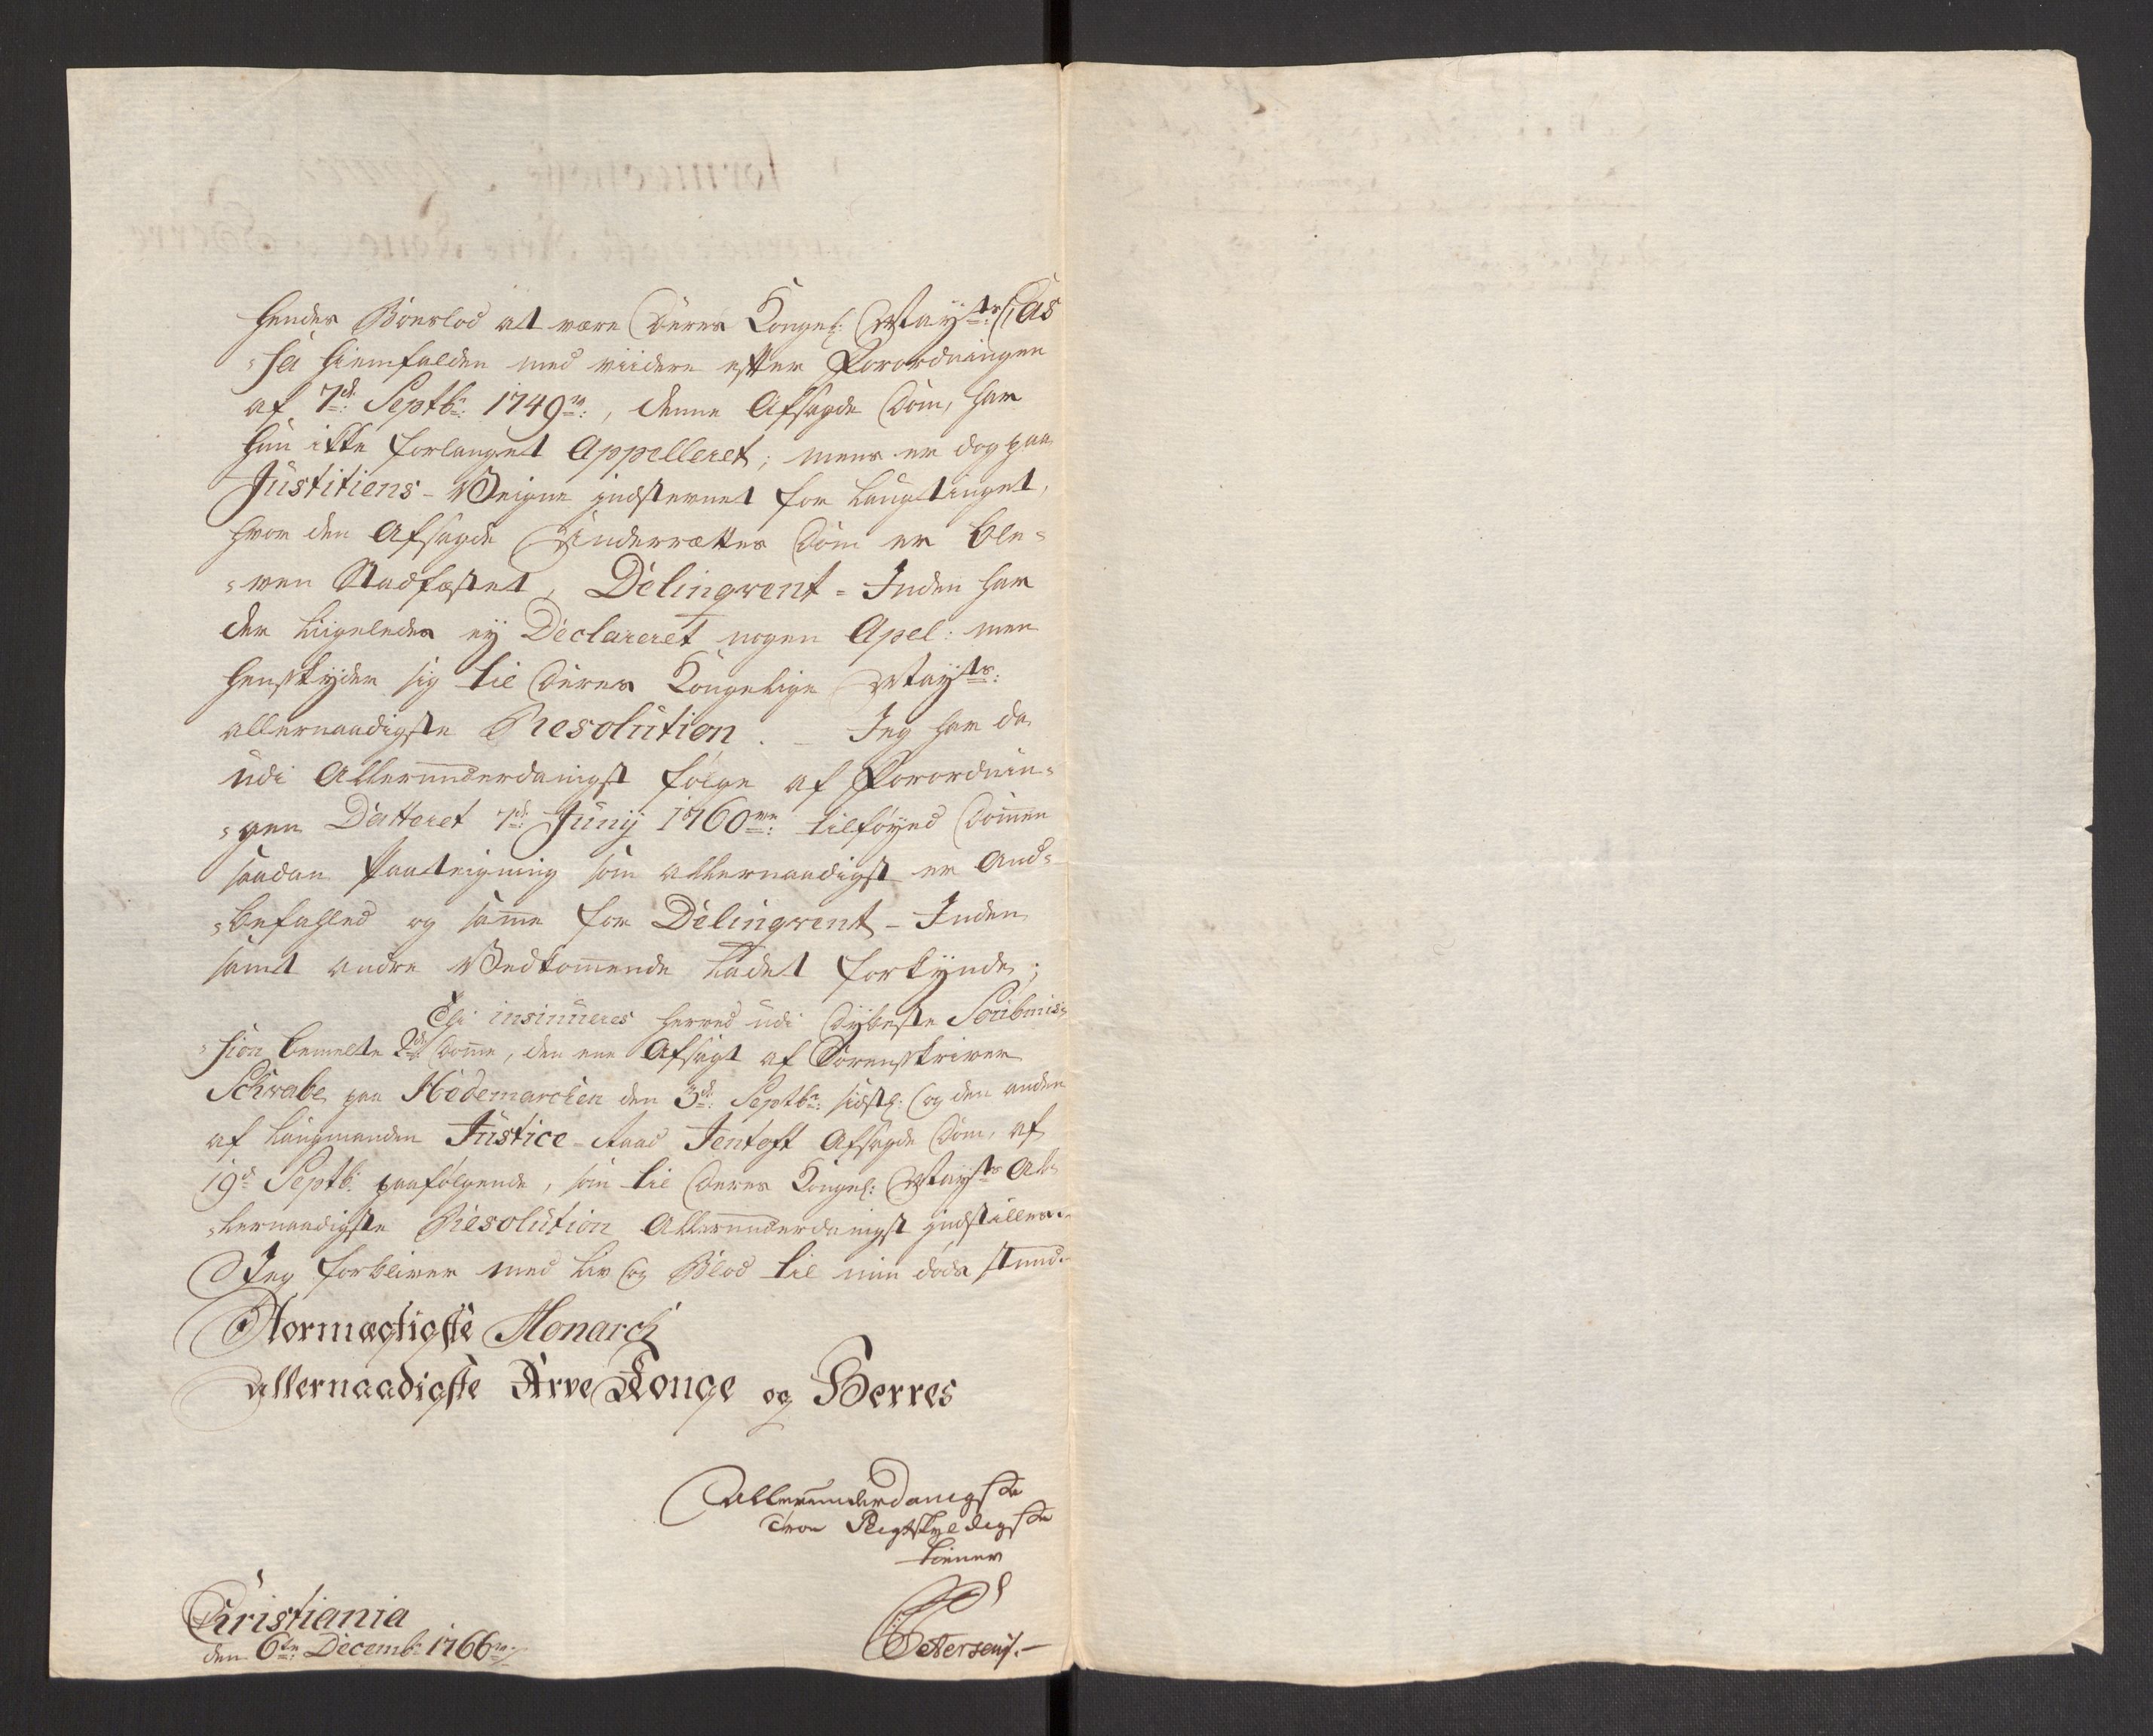 hendes Boeslod at være Deres Kongel: Mayts: Cas
=sa hiemfalden med viidere efter Forordningen
af 7de: Septbr: 1749ve:, denne Afsagde Dom, har
hun ikke forlanget Appelleret; mens er dog paa
Justitiens-Veigne indstevnet for Laugtinget,
hvor den Afsagde Underrettes Dom er ble=
=ven Stadfæstet, Delinqvent=Inden har
der liigeledes ey Declareret nogen Apel: men
henskyder sig til Deres Kongelige Mayts:
allernaadigste Resolution. – Jeg har da
udi Allerunderdanigst følge af Forordnin=
=gen Datteret 7de: Junij 1760ve: tilføyed Dommen
saadan Paateigning som allernaadigst er And=
=befahled og samme for Delinqvent-Inden
samt andre Vedkommende ladet forkynde;
Thi insinueres herved udi dybeste Soubmis=
=sion bemelte 2de Domme, den ene Afsagt af Sorenskriver
Schwabe paa Hedemarcken den 3de: Septbr: sidstl: og den anden
af Laugmanden Justice-Raad Jentoft Afsagde Dom, af
19de Septb: paafølgende, som til Deres Kongel: Mayts Al=
=lernaadigste Resolution Allerunderdanigst indstilles.
Jeg forbliver med Liv og Blod til min døds stund.
Stormægtigste Monarch
allernaadigste Arve Konge og Herres
Allerunderdanigste
troe Pligtskyldigste
tiener
Christiania
den 6te: Decemb: 1766ve:
Petersen.